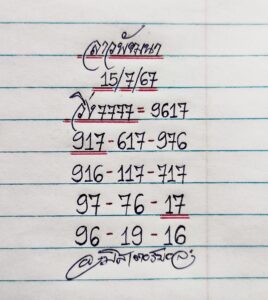 ลาวพัฒนา
15/7/67
วิ่ง 7777 = 9617
917 - 617 - 976
916 - 117 - 717
97 - 76 - 17
96 - 19 - 16